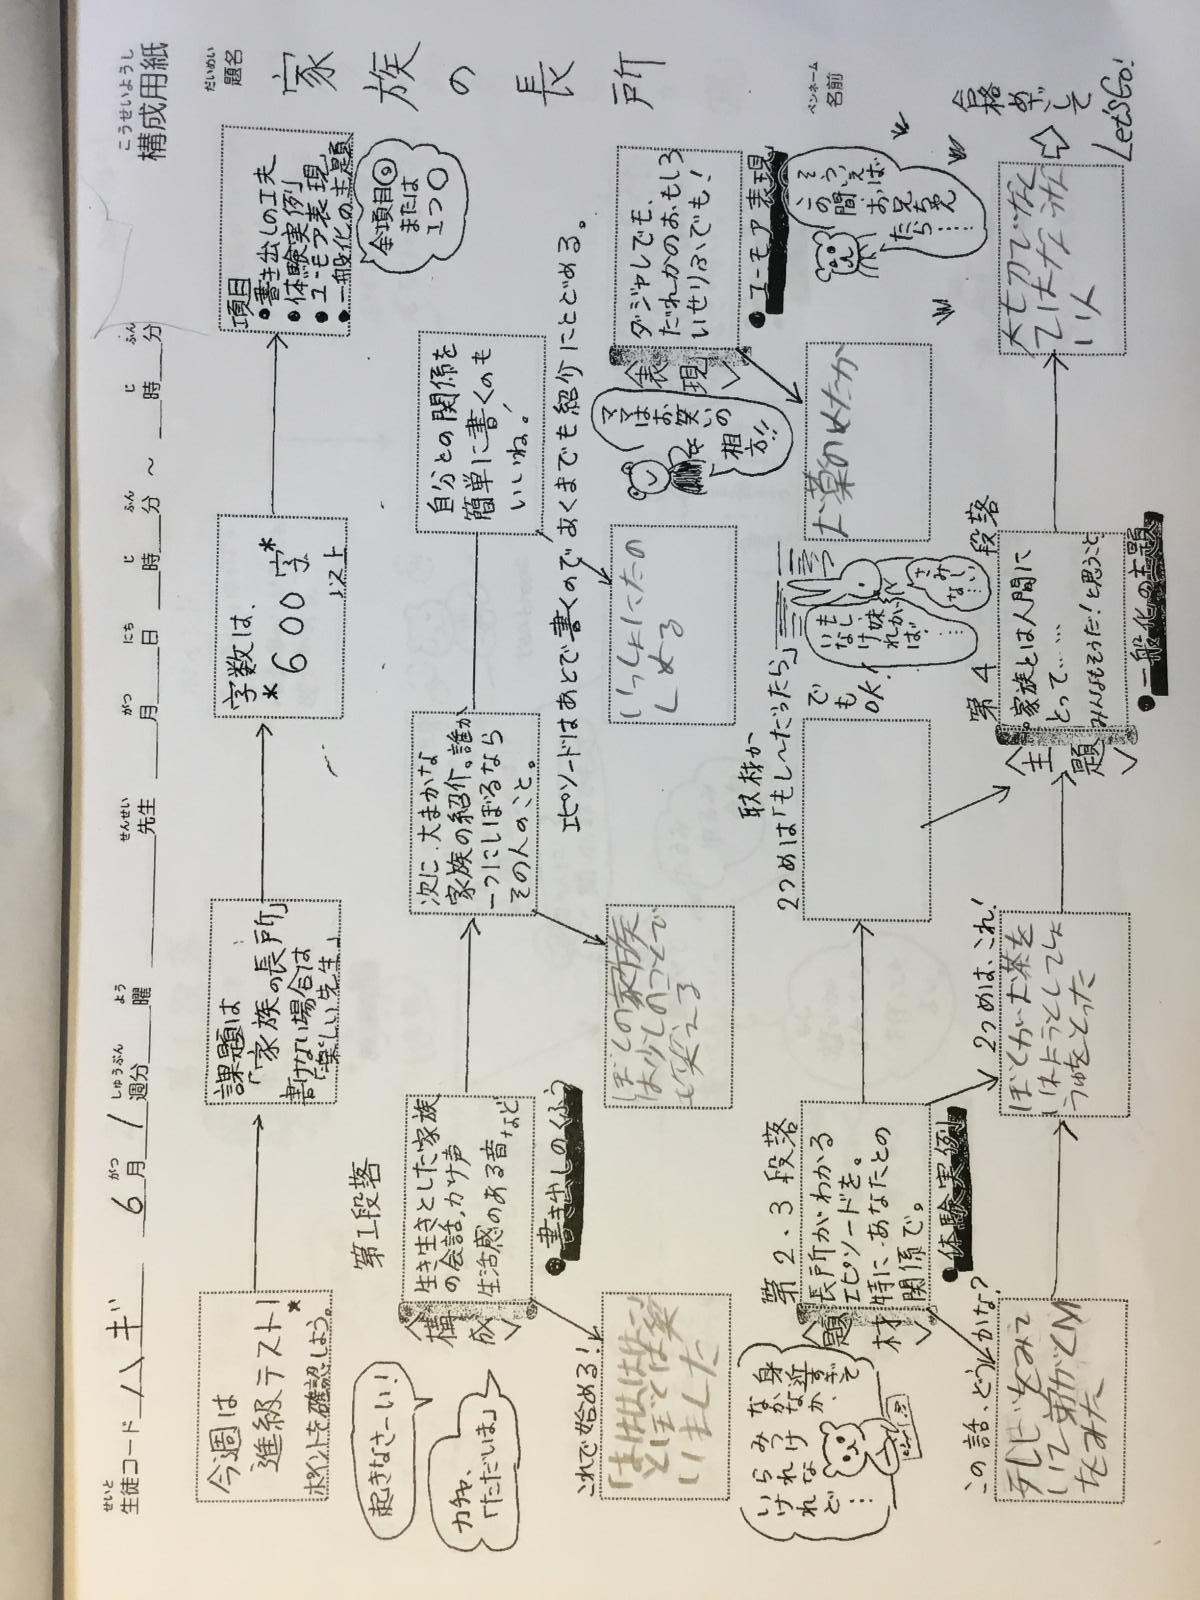 こうせいようし
構成用紙
だいめい
題名
家族の長所
ペンネーム
名前
せいと
生徒コード ハギ
6月1週分 曜 先生 月 日 時 分 ～ 時 分
がつ しゅうぶん よう せんせい がつ にち じ ふん じ ふん
今週は
進級テスト!
ポイントを確認しよう。
課題は
「家族の長所」
書けない場合は
「楽しい先生」
字数は、
*600字*
以上
項目
●書き出しの工夫
●体験実例
●ユーモア表現
●一般化の主題
全項目◎
または
1つ〇
起きなさーい!
カチャ、
「ただいま」
第1段落
〈構成〉
生き生きとした家族
の会話、かけ声
生活感のある音など
●書き出しのくふう
次に、大まかな
家族の紹介。誰か
一つにしぼるなら
その人のこと。
自分との関係を
簡単に書くのも
いいね!
エピソードはあとで書くのであくまでも紹介にとどめる。
これで始める!
ぼくの家族
は少しのことで
も笑える
いっしょにいたの
しめる
〈表現〉
ダジャレでも、
だれかのおもしろ
いせりふでも!
●ユーモア表現
ママは
お笑いの
相方!!
第2.3段落
〈題材〉
長所がわかる
エピソードを。
特に、あなたとの
関係で。
●体験実例
身近すぎて
なかなか、
みつけ
られな
いけれ
ど……
取材か
2つめは「もし〜だったら」
でも
OK!
もし妹
がいな
ければ
……
さみ
しい
な…
そう
いえば
この間
お兄ちゃん
たら
……
この話、どうかな?
2つめは、これ!
ぼくがお茶を
第4段落
〈主題〉
家族とは人間に
とって……
みんなもそうだ!と思うこと
●一般化の主題
合格
めざして
Let'sGo!